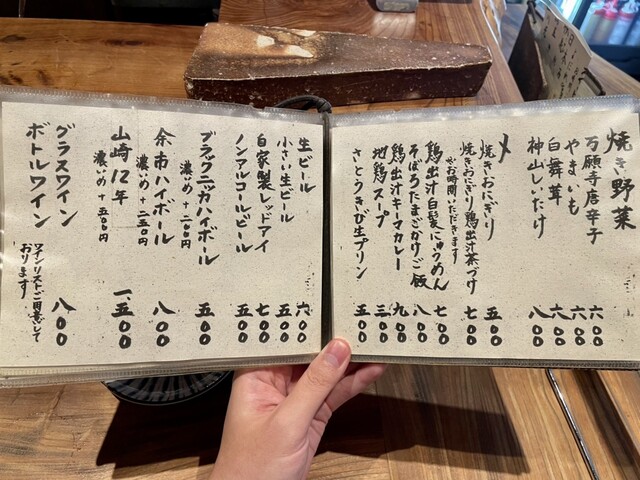 焼き野菜
万願寺唐辛子 六〇〇
やまいも 六〇〇
白舞茸 六〇〇
神山しいたけ 八〇〇
〆
焼きおにぎり 五〇〇
焼きおにぎり鶏出汁茶づけ 七〇〇
※お時間いただきます
鶏出汁白髪にゅうめん 七〇〇
そぼろたまごかけご飯 八〇〇
鶏出汁キーマカレー 九〇〇
地鶏スープ 三〇〇
さとうきび生プリン 五〇〇
生ビール 六〇〇
小さい生ビール 五〇〇
自家製レッドアイ 七〇〇
ノンアルコールビール 五〇〇
ブラックニッカハイボール 五〇〇
濃いめ+二〇〇円
余市ハイボール 八〇〇
濃いめ+二五〇円
山崎12年 一、五〇〇
濃いめ+五〇〇円
グラスワイン 八〇〇
ボトルワイン
ワインリストご用意して
おります